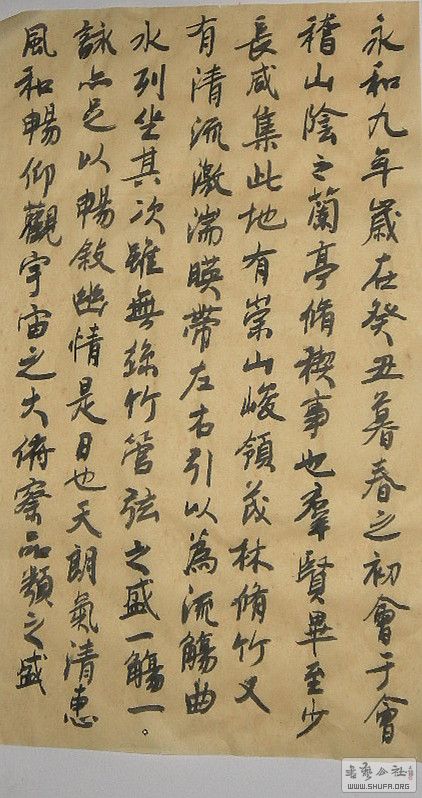 永和九年歲在癸丑暮春之初會于會
稽山陰之蘭亭脩禊事也羣賢畢至少
長咸集此地有崇山峻領茂林脩竹又
有清流激湍暎帶左右引以為流觴曲
水列坐其次雖無絲竹管弦之盛一觴一。
詠亦足以暢敘幽情是日也天朗氣清惠
風和暢仰觀宇宙之大俯察品類之盛
書藝公社
WWW.SHUFA.ORG